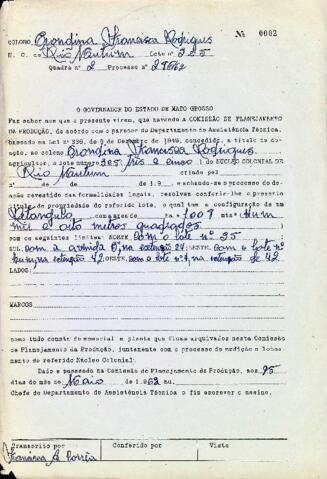 COLONO Erondina Francisca Rodrigues Nº 0002
N. C. do Rio Mutum Lote nº 3 e 5
Quadra nº 2 Processo nº
O GOVERNADOR DO ESTADO DE MATO GROSSO
Faz saber aos que o presente virem, que havendo a COMISSÃO DE PLANEJAMENTO
DA PRODUÇÃO, de acôrdo com o parecer do Departamento de Assistência Técnica,
baseado na Lei 336, de 6 de Dezembro de 1949, concedido, a título de
ao colono Erondina Francisca Rodrigues
agricultor, o lote número 3e5, três e cinco do NUCLEO COLONIAL DE
Rio Mutum criado pelo
nº de de de 19 e achando-se o processo de
revestido das formalidades legais, resolveu conferir-lhe o presente
título de propriedade do referido lote, o qual tem a configuração de um
Retangulo com a área de ha 1008 mts² Hum
mil e oito metros quadrados
com os seguintes limites: NORTE com o lote nº 25
SUL com a avenida na extenção 24 ; LESTE com o lote nº
na extenção 42 OESTE com o lote nº na extenção de 42
LADOS:
MARCOS
como tudo consta do memorial e planta que ficam arquivados nesta Comissão
de Planejamento da Produção, juntamente com o processo de medição e loteamento
do referido Núcleo Colonial.
Dado e passado na Comissão de Planejamento da Produção, aos 25
dias do mês de Maio de 1962 Eu,
Chefe do Departamento de Assistência Técnica o fiz escrever e assino.
Transcrito por Conferido por Visto
Francisca A. Corrêa